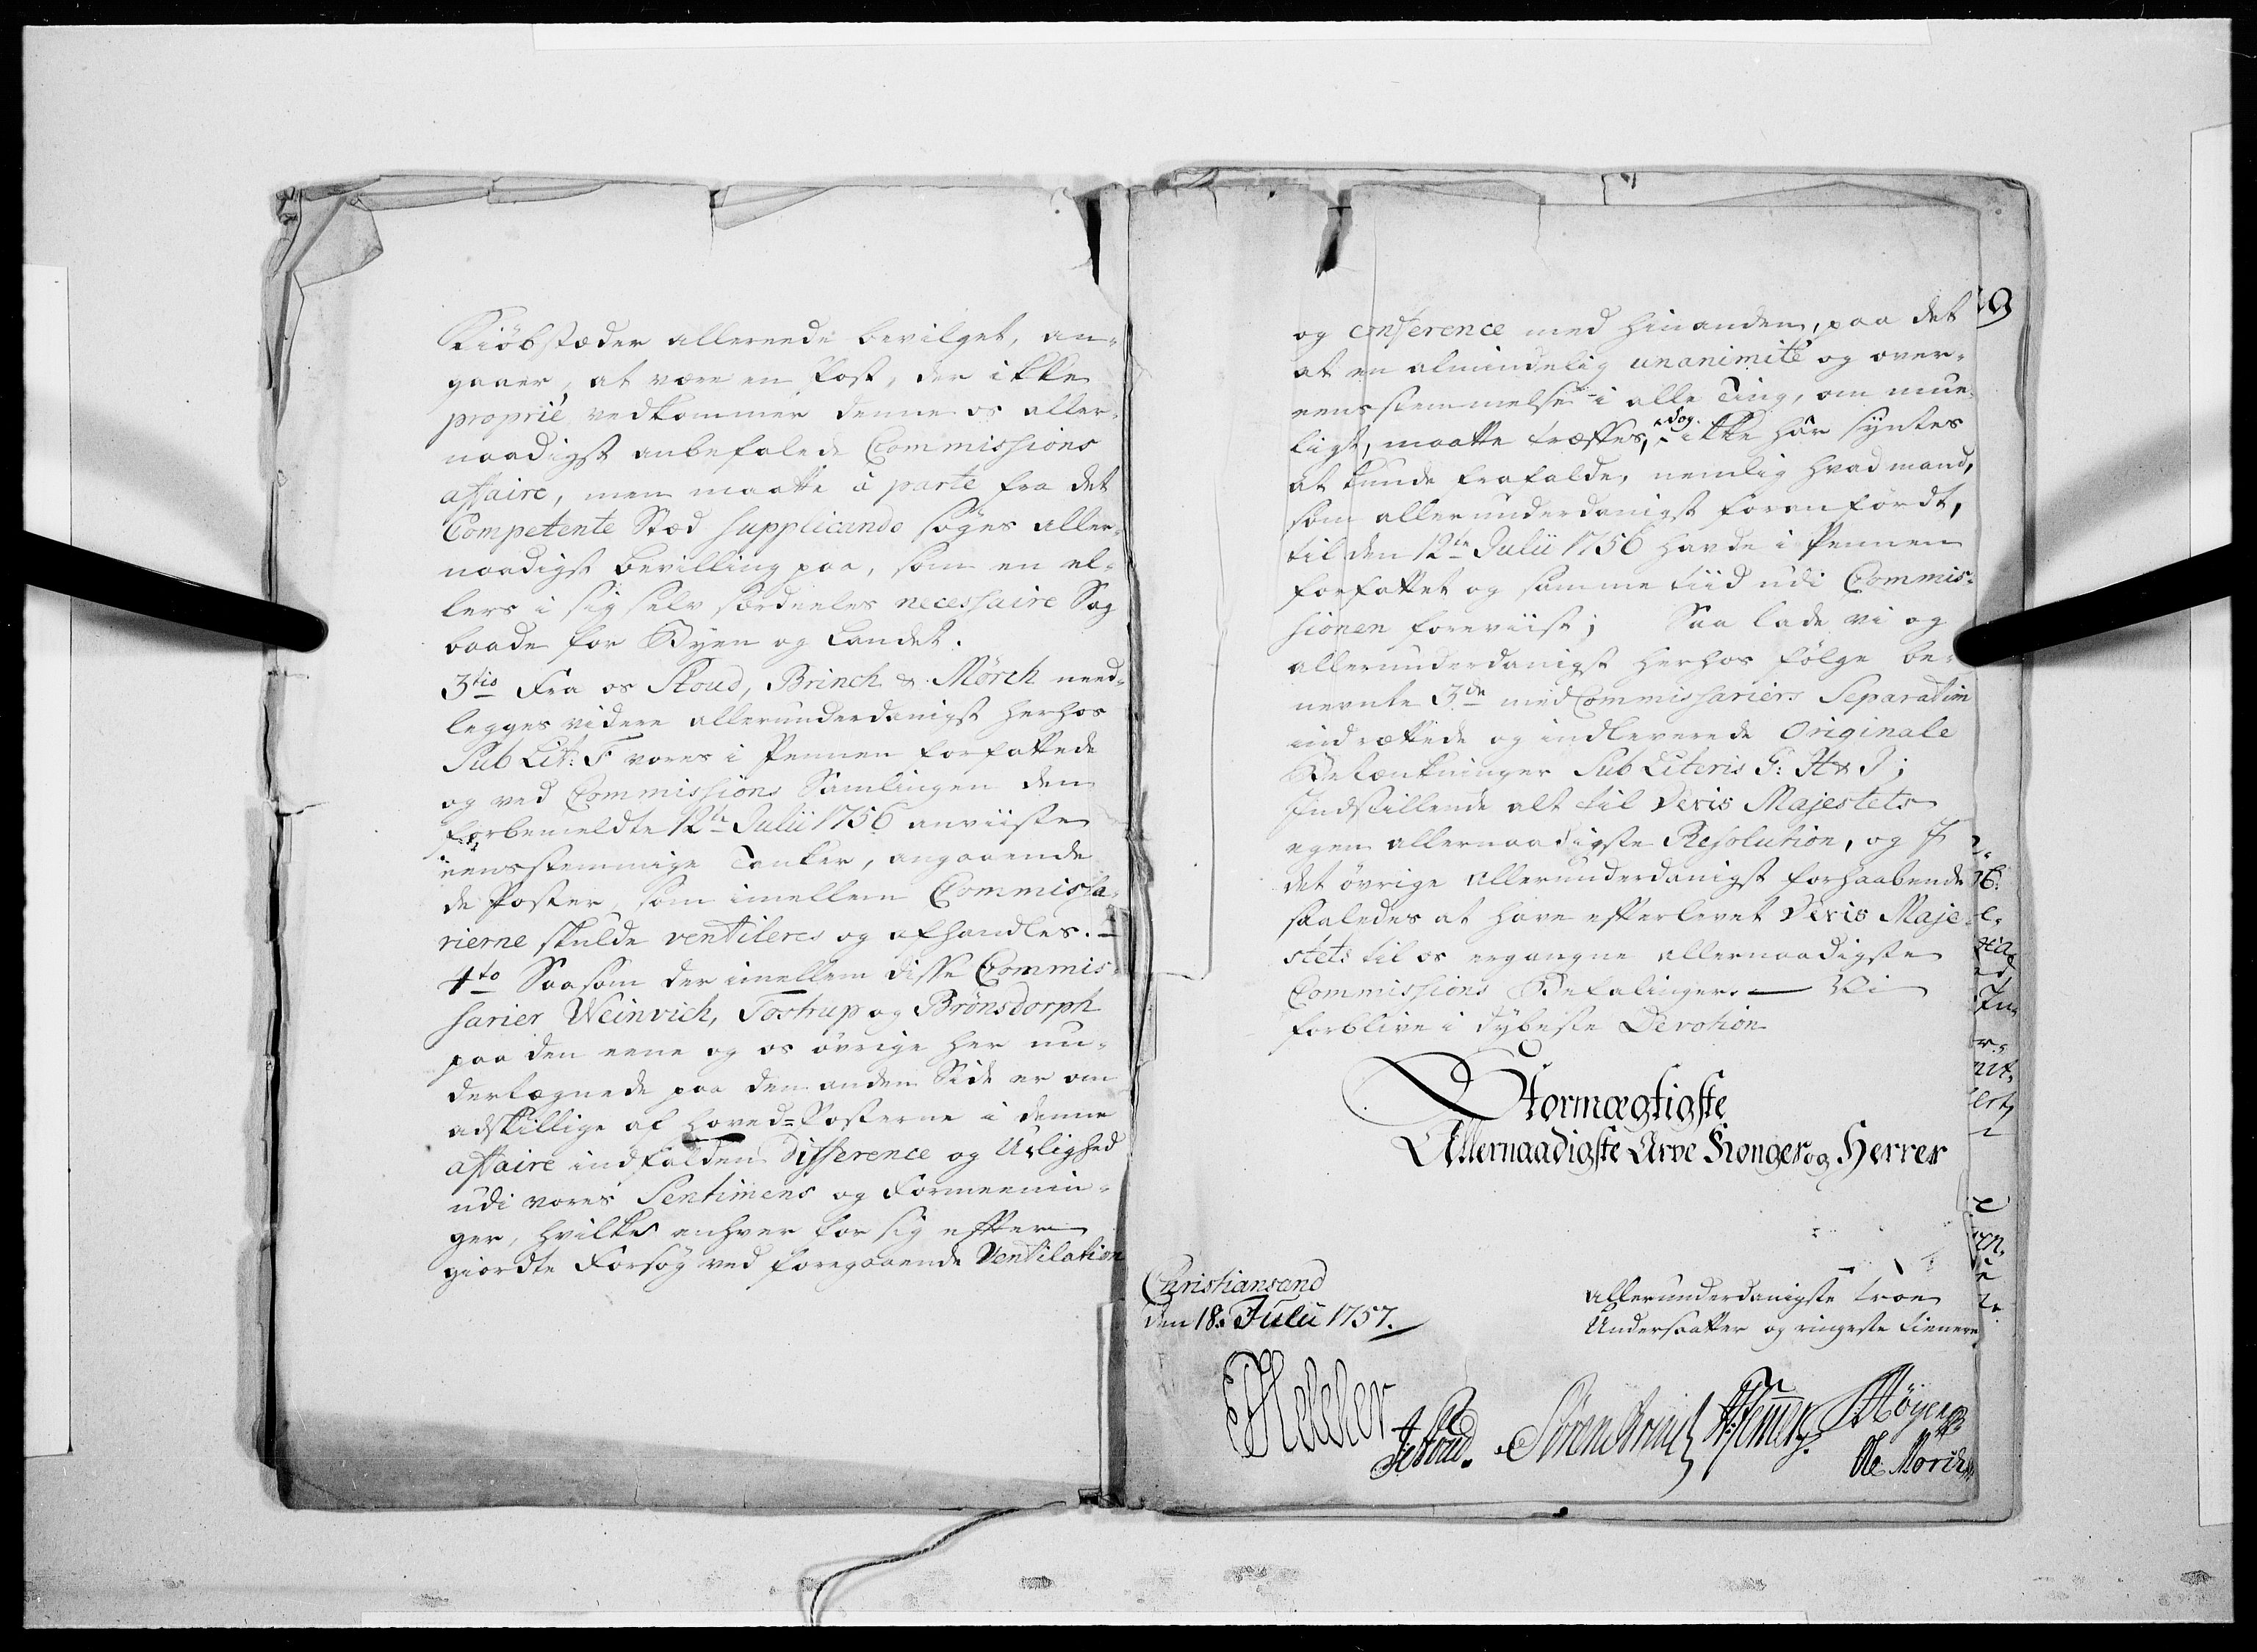 Kiöbstæder allereede bevilget, an-
gaaer, at være en Post, der ikke
proprié vedkommer denne os aller-
naadigst anbefalede Commissions
affaire, men maatte à parte fra det
Competente Stæd supplicando søges aller-
naadigst bevilling paa, som en el-
lers i sig selv særdeeles necessaire Sag
baade for Byen og Landet.
3tio Fra os Stoud, Brinch & Mörch need-
legges videre allerunderdanigst herhos
Sub Lit: F vores i Pennen forfattede
og ved Commissions Samlingen den
forbemeldte 12te Julii 1756 anviiste
eenstemmige Tanker, angaaende
de Poster, som imellem Commissa-
rierne skulde ventileres og afhandles. —
4to Saasom der imellem disse Commis-
sarier Weinvich, Tostrup og Brönsdorph
paa den eene og os øvrige her un-
dertegnede paa den anden Side er om
adskillige af Hoved-Posterne i denne
affaire indfalden Difference og Ulighed
udi vores Sentimens og Formeenin-
ger, hvilke enhver for sig efter
giordte Forsøg ved foregaaende Ventilation
og conference med hinanden, paa det
at en almindelig unanimité og over-
eensstemmelse i alle Ting, om mue-
ligt, maatte træffes, dog ikke har syntes
at kunde frafalde, nemlig hvad mand,
som allerunderdanigst foranfördt,
til den 12te Julii 1756 havde i Pennen
forfattet og samme tiid udi Commis-
sionen foreviist; Saa lade vi og
allerunderdanigst herhos følge be-
nevnte 3de med Commissariers Separatim
indrættede og indleverede Originale
Betænkninger Sub Literis G: H & I;
Indstillende alt til Deris Majestets
egen allernaadigste Resolution, og J
det øvrige allerunderdanigst forhaabende
saaledes at have efterlevet Deris Maje-
stets til os ergangne allernaadigste
Commissions Befalinger. — Vi
forblive i dybeste Devotion
Stormægtigste
Allernaadigste Arve Konges og Herres
Christiansand
den 18. Julii 1757.
allerunderdanigste troe
Undersaatter og ringeste tienere
JStoud. Sören Brinch Höyer
Ole Mörch